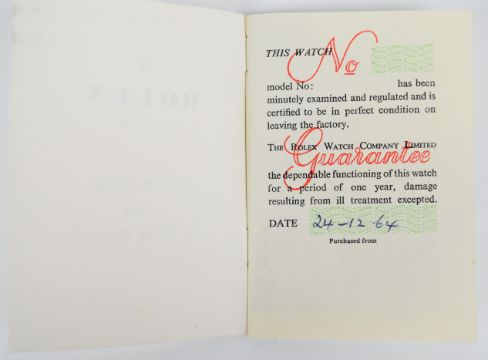 THIS WATCH No
model No: has been
minutely examined and regulated and is
certified to be in perfect condition on
leaving the factory.
THE ROLEX WATCH COMPANY LIMITED
Guarantee
the dependable functioning of this watch
for a period of one year, damage
resulting from ill treatment excepted.
DATE 24-12-64
Purchased from
ROLEX